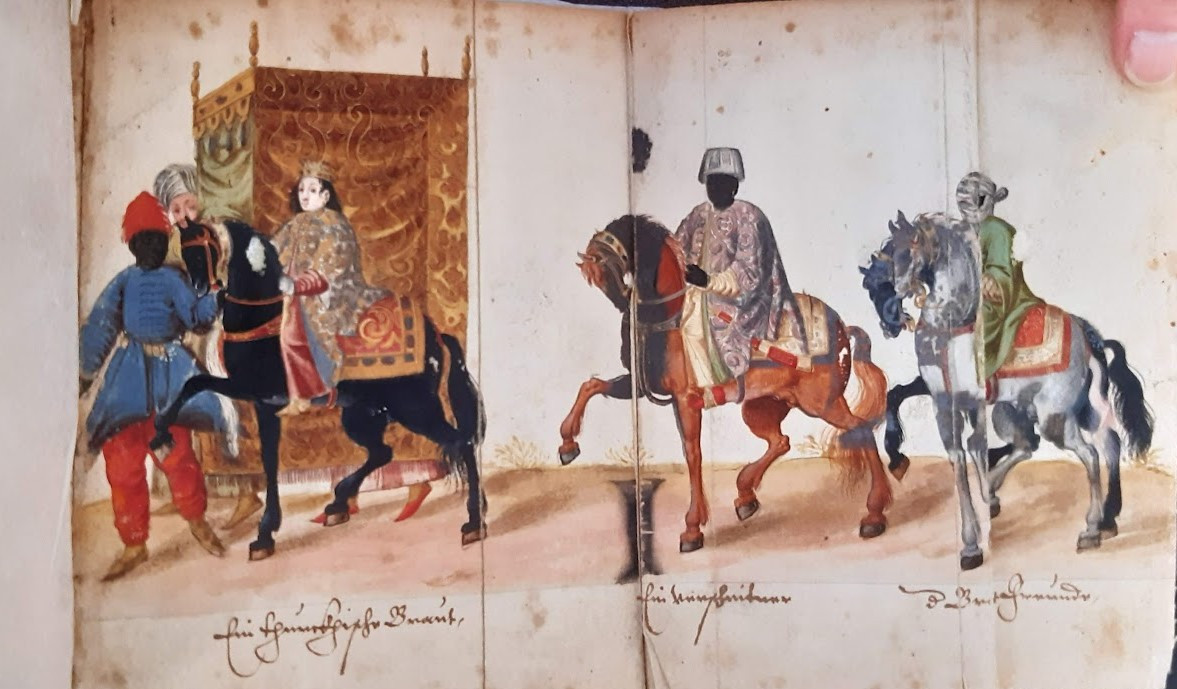 Ein thürckhische Braut,
Ein verschnitner
d Braut Freunde,